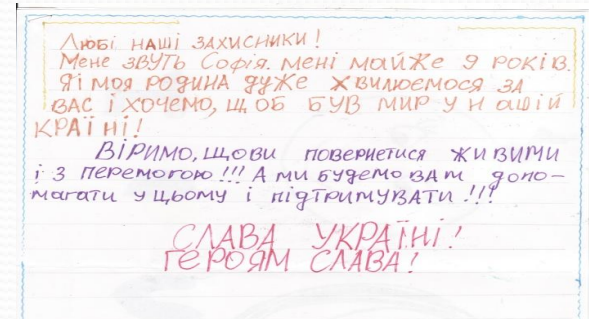 Любі наші захисники!
Мене звуть Софія. Мені майже 9 років.
Я і моя родина дуже хвилюємося за
вас і хочемо, щоб був мир у нашій
країні!
Віримо, що ви повернетися живими
і з перемогою!!! А ми будемо вам допо-
магати у цьому і підтримувати!!!
СЛАВА УКРАЇНІ!
ГЕРОЯМ СЛАВА!